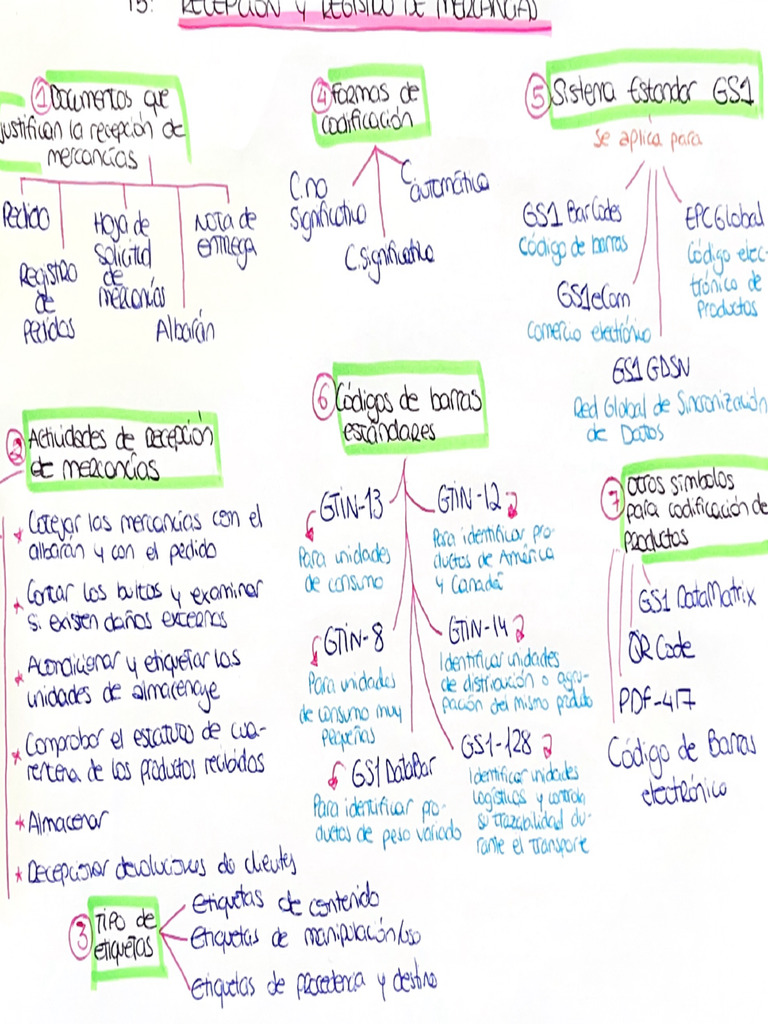 T5: RECEPCIÓN Y REGISTRO DE MERCANCÍAS
① Documentos que
justifican la recepción de
mercancías
Pedido
Registro
de
Pedidos
Hoja de
Solicitud
de
mercancías
Albarán
Nota de
entrega
② Actividades de recepción
de mercancías
* Cotejar las mercancías con el
albarán y con el pedido
* Contar los bultos y examinar
si existen daños externos
* Acondicionar y etiquetar las
unidades de almacenaje
* Comprobar el estatuto de cua-
rentena de los productos recibidos
* Almacenar
* Recepcionar devoluciones de clientes
③ Tipo de
etiquetas
Etiquetas de contenido
Etiquetas de manipulación/uso
Etiquetas de procedencia y destino
④ Formas de
codificación
C.no
Significativo
C.significativo
C.automática
⑤ Sistema Estandar GS1
Se aplica para
GS1 BarCodes
Código de barras
GS1eCom
Comercio electrónico
GS1 GDSN
Red Global de Sincronización
de Datos
EPCGlobal
Código elec-
trónico de
Productos
⑥ Códigos de barras
estándares
GTIN-13
Para unidades
de consumo
GTIN-12
Para identificar pro-
ductos de América
y Canadá
GTIN-8
Para unidades
de consumo muy
pequeñas
GTIN-14
Identificar unidades
de distribución o agru-
pación del mismo producto
GS1 DataBar
Para identificar pro-
ductos de peso variado
GS1-128
Identificar unidades
logísticas y controlar
su trazabilidad du-
rante el transporte
⑦ Otros símbolos
para codificación de
Productos
GS1 DataMatrix
QR Code
PDF-417
Código de Barras
electrónico